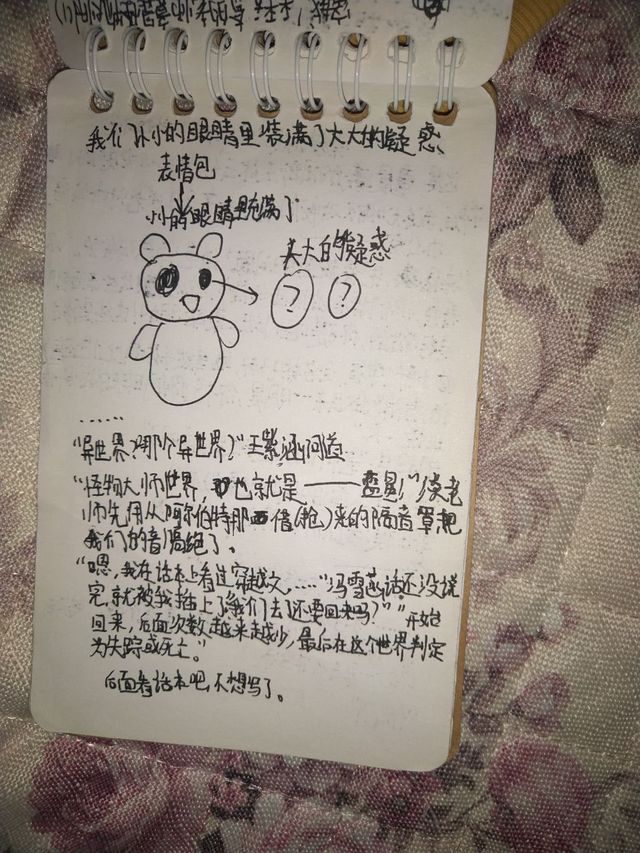 我们小小的眼睛里装满了大大的疑惑
表情包
小小的眼睛里充满了
大大的疑惑
? ?
……
"异世界?哪个异世界?"王紫涵问道
"怪物大师世界,也就是——蓝星!"老
师先用从阿尔伯特那借(抢)来的隔音罩把
我们的音隔绝了。
"嗯,我在话本上看过穿越文,……"冯雪燕话还没说
完,就被我插上了"我们去了还要回来吗?" "开始
回来,后面次数越来越少,最后在这个世界判定
为失踪或死亡。"
后面看话本吧,不想写了。